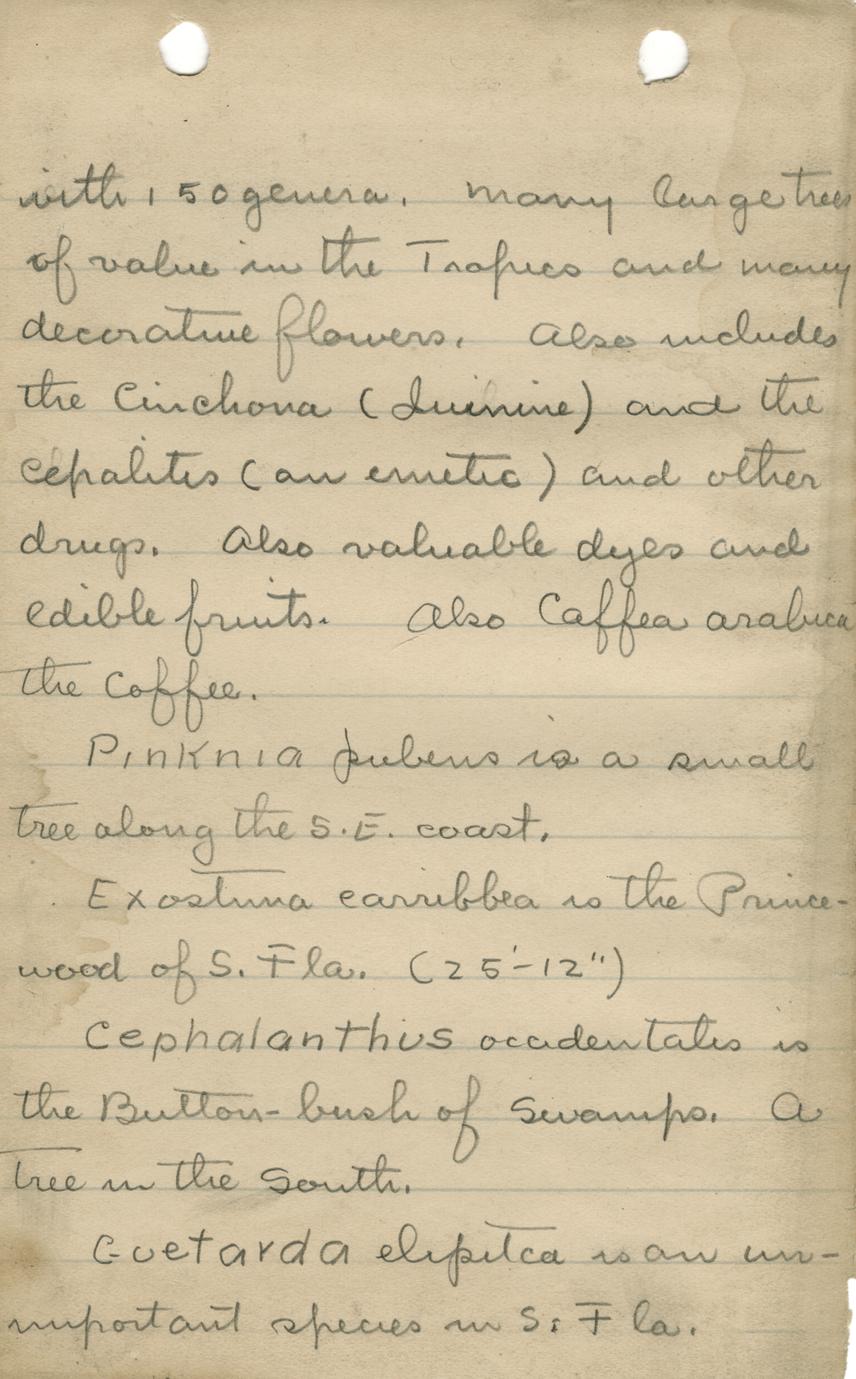 with 150 genera. Many large trees
of value in the Tropics and many
decorative flowers. Also includes
the Cinchona (Quinine) and the
cepalitis (an emetic) and other
drugs. Also valuable dyes and
edible fruits. Also Caffea arabica
the Coffee.
Pinknia pubens is a small
tree along the S.E. coast.
Exostima carribbea is the Prince-
wood of S. Fla. (25'-12")
Cephalanthus occidentalis is
the Button-bush of Swamps. A
tree in the South.
Guetarda elipitca is an un-
important species in S. Fla.